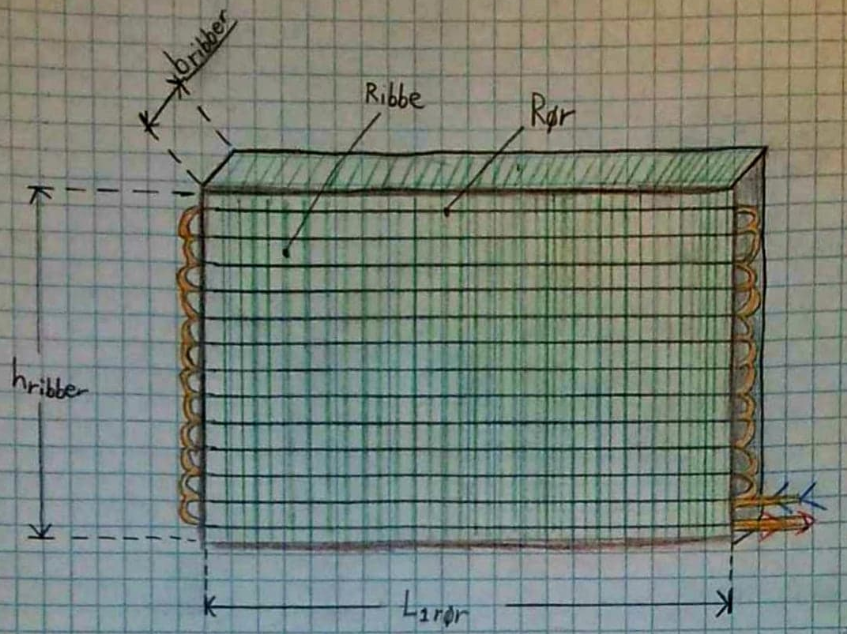 bribber
Ribbe
Rør
hribber
L1rør